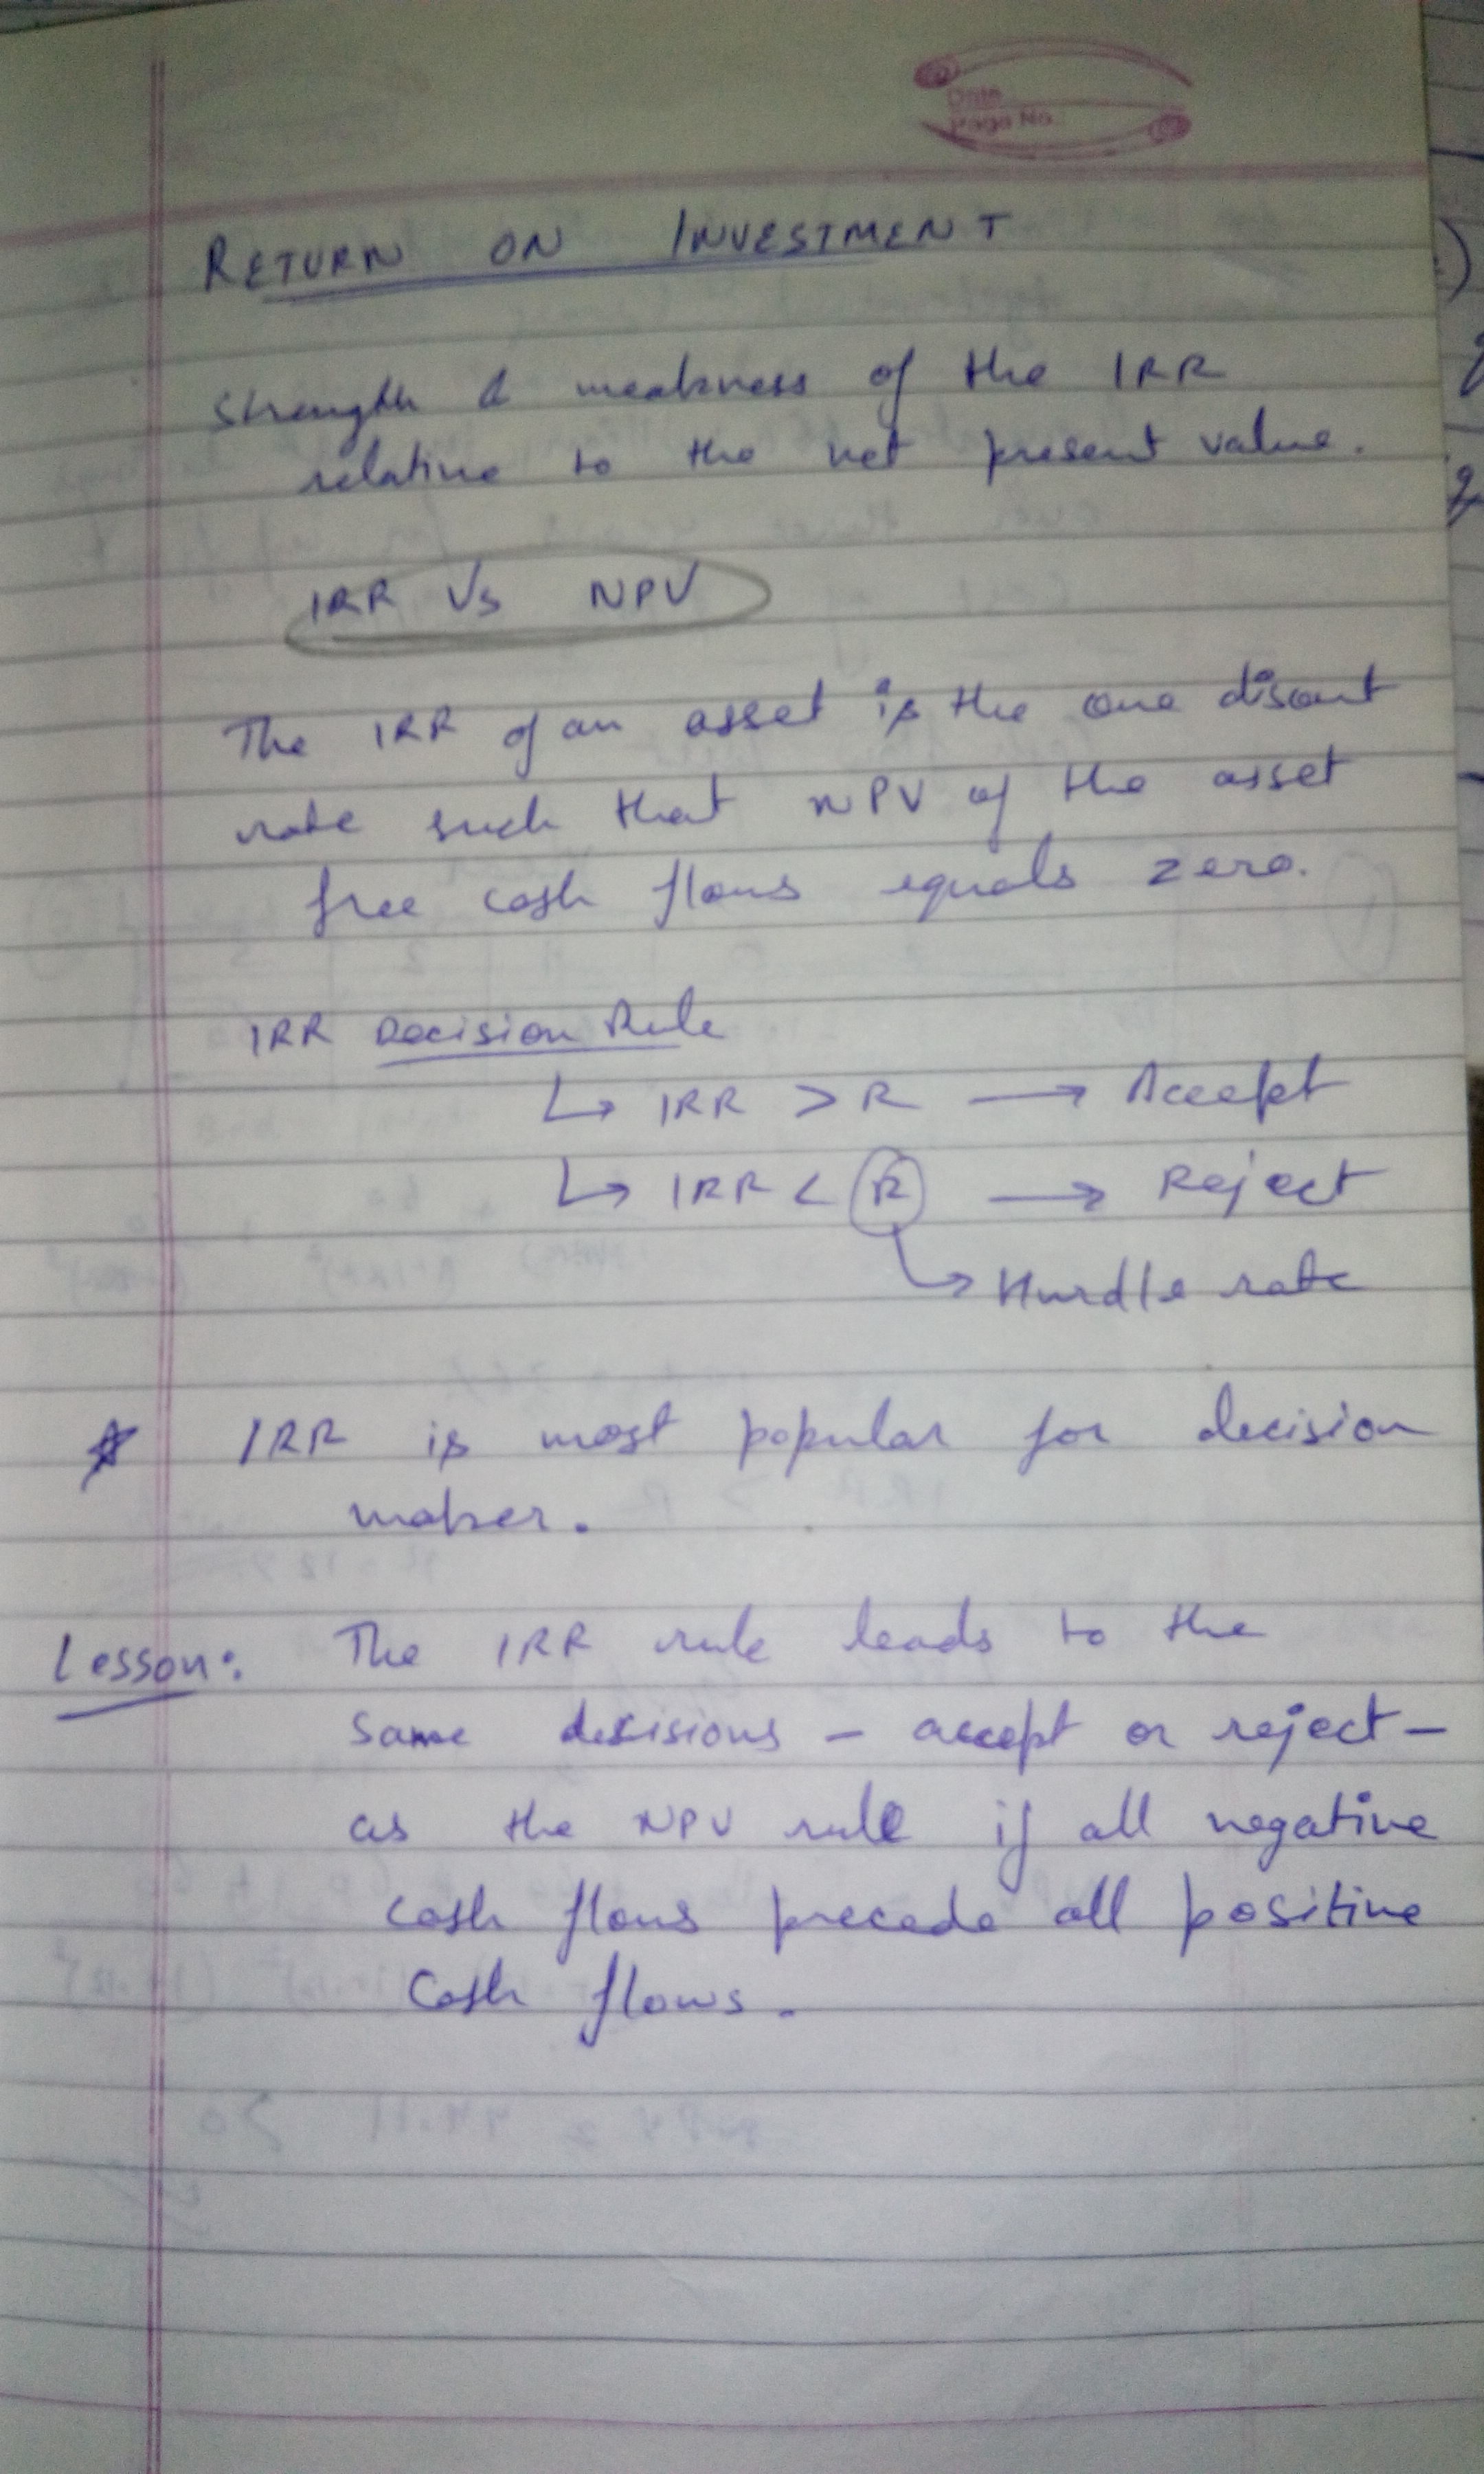 Date
Page No.
RETURN ON INVESTMENT
Strength & weakness of the IRR
relative to the net present value.
IRR Vs NPV
The IRR of an asset is the one discout
rate such that NPV of the asset
free cash flows equals zero.
IRR Decision Rule
↳ IRR > R → Accept
↳ IRR < R → Reject
↳ Hurdle rate
☆ IRR is most popular for decision
maker.
Lesson: The IRR rule leads to the
same decisions - accept or reject -
as the NPV rule if all negative
cash flows precede all positive
cash flows.